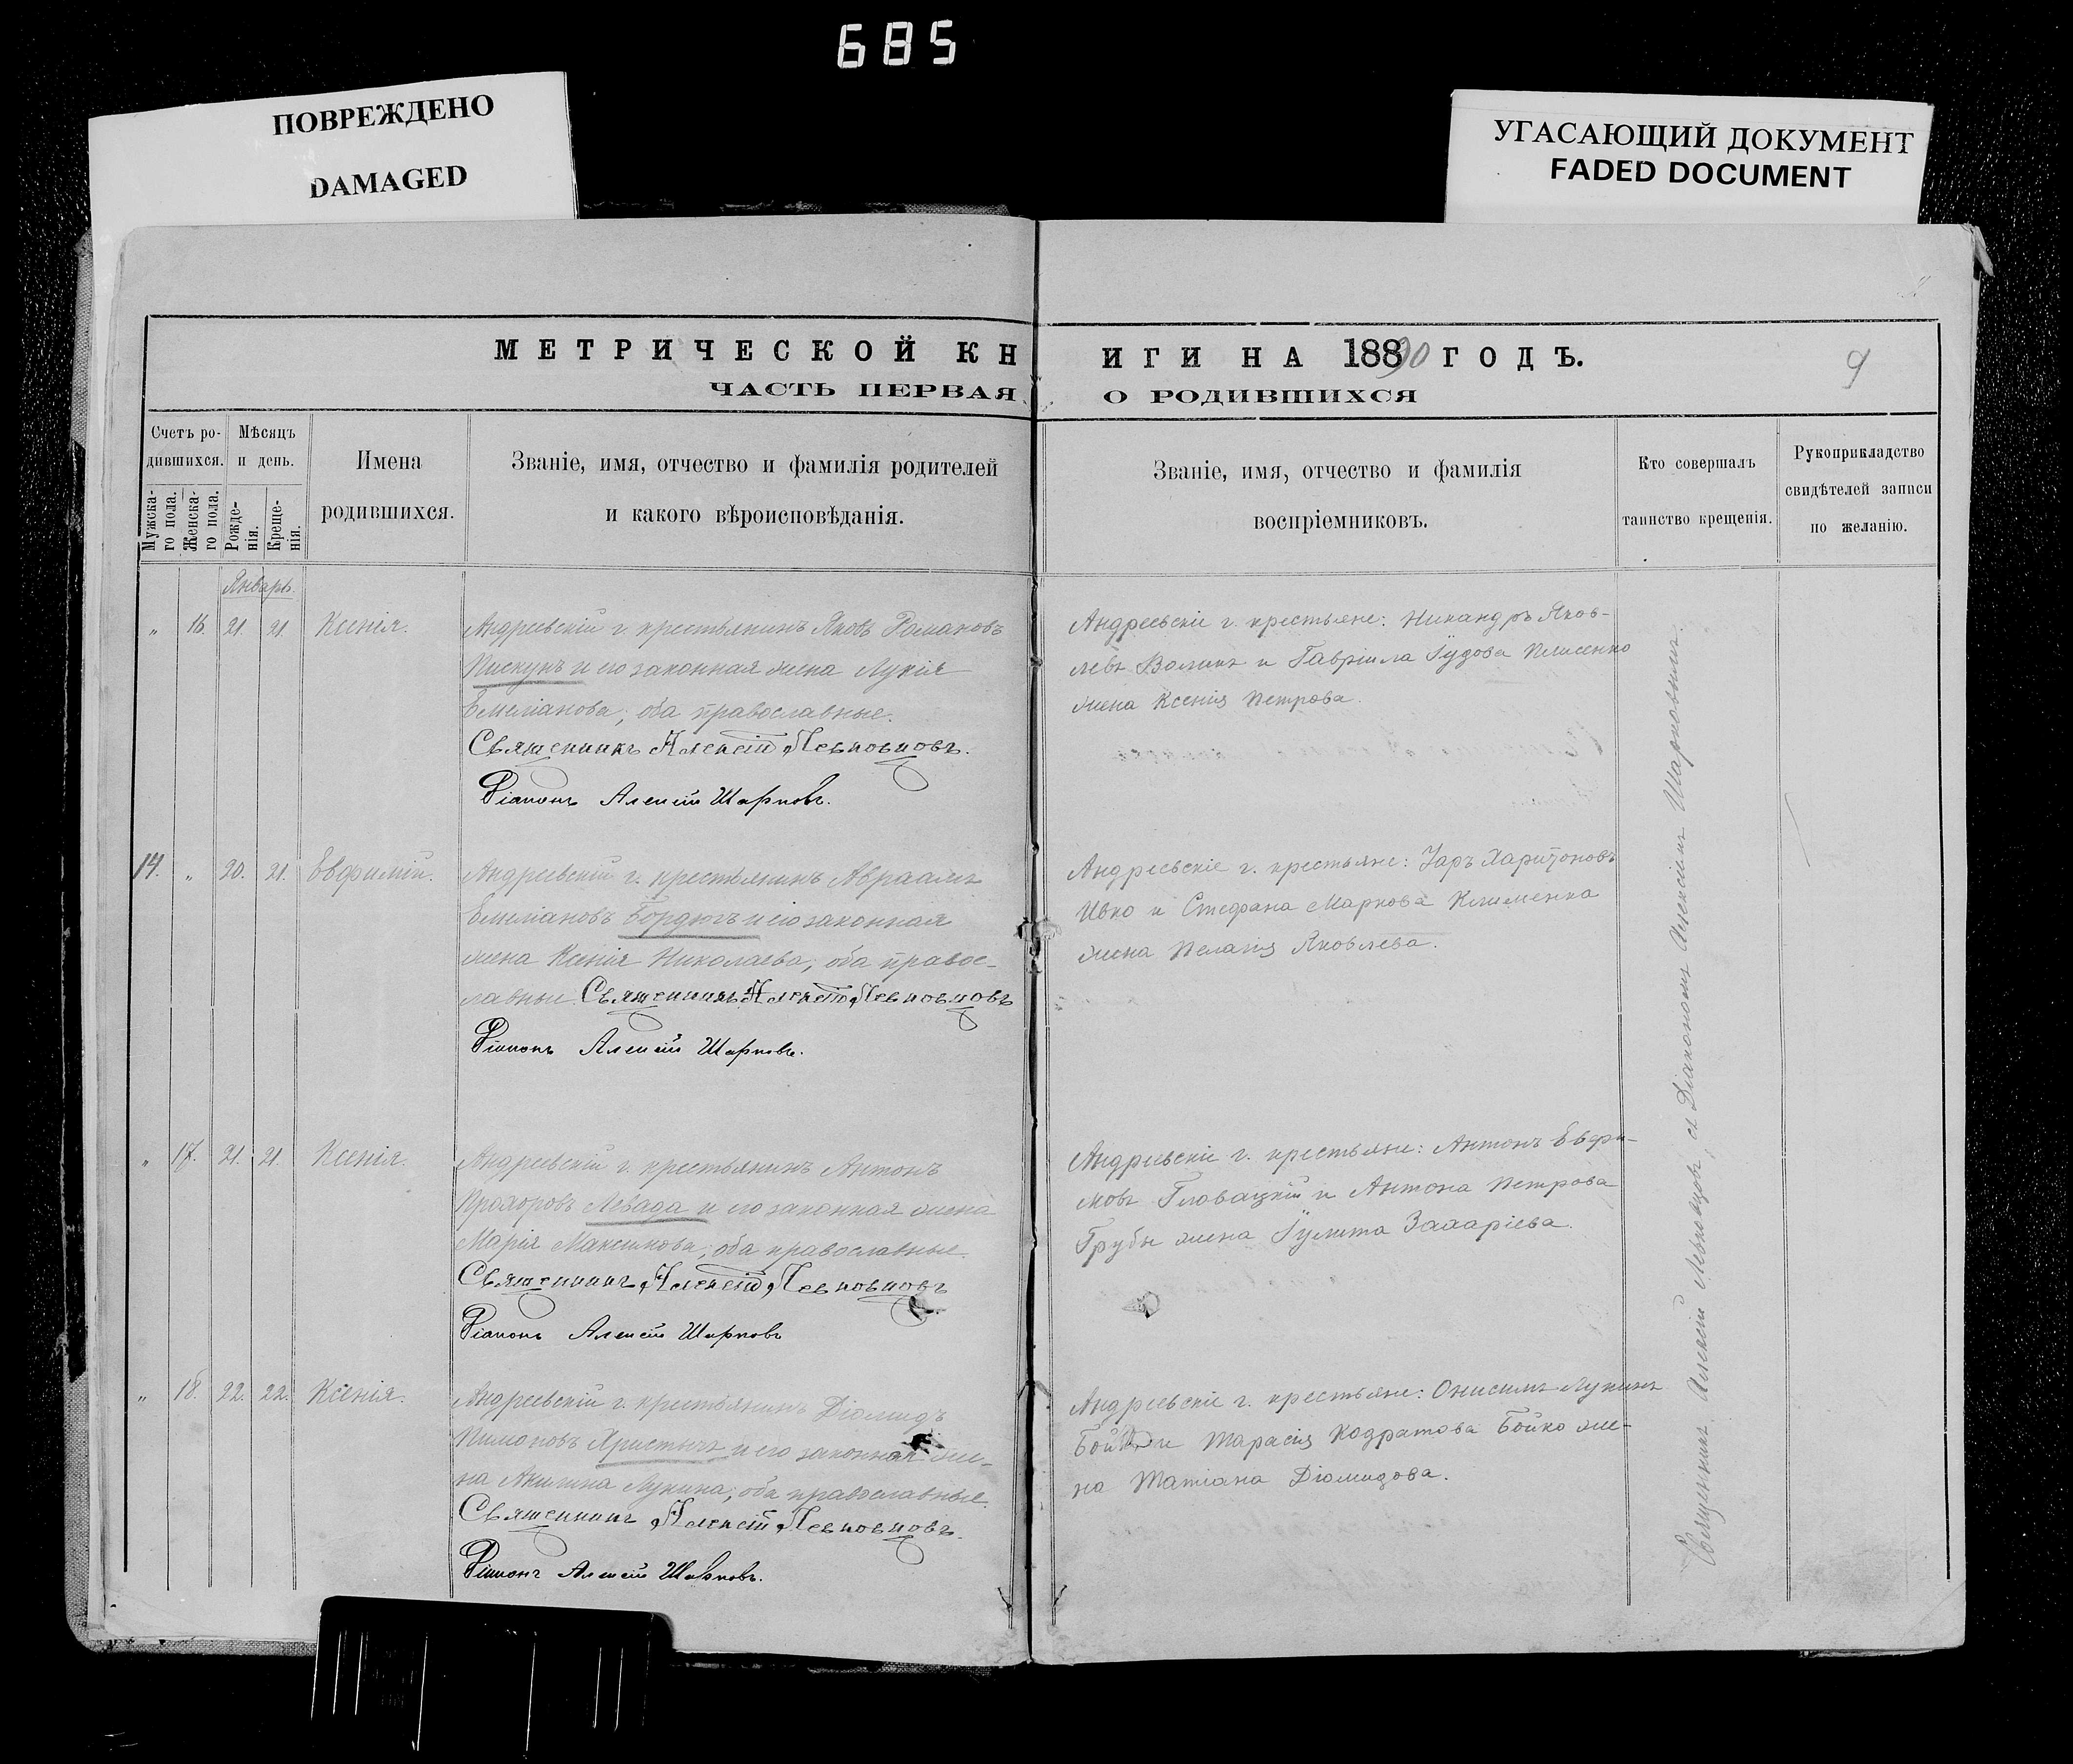 685
ПОВРЕЖДЕНО
DAMAGED
УГАСАЮЩИЙ ДОКУМЕНТ
FADED DOCUMENT
МЕТРИЧЕСКОЙ КНИГИ НА 18890 ГОДЪ.
9
ЧАСТЬ ПЕРВАЯ О РОДИВШИХСЯ
Счетъ ро-
дившихся.
Мужска-
го пола.
Женска-
го пола.
Мѣсяцъ
и день.
Рожде-
нія.
Креще-
нія.
Имена
родившихся.
Званіе, имя, отчество и фамилія родителей
и какого вѣроисповѣданія.
Званіе, имя, отчество и фамилія
воспріемниковъ.
Кто совершалъ
таинство крещенія.
Рукоприкладство
свидѣтелей записи
по желанію.
Январь.
„ 16. 21. 21. Ксенія.
Андреевскій г. крестьянинъ Яковъ Романовъ
Пискунъ и его законная жена Лукія
Емеліанова, оба православные.
Священникъ Алексій Левковцовъ.
Діаконъ Алексій Шарковъ.
Андреевскіе г. крестьяне: Никандръ Яков-
левъ Воликъ и Гавріила Іудова Пелисенко
жена Ксенія Петрова.
14. „ 20. 21. Евфимій.
Андреевскій г. крестьянинъ Авраамъ
Емеліановъ Бордюгъ и его законная
жена Ксенія Николаева, оба правос-
лавные. Священникъ Алексій Левковцовъ
Діаконъ Алексій Шарковъ.
Андреевскіе г. крестьяне: Уаръ Харитоновъ
Ивко и Стефана Маркова Клименка
жена Пелагія Яковлева.
„ 17. 21. 21. Ксенія.
Андреевскій г. крестьянинъ Антонъ
Прохоровъ Левада и его законная жена
Марія Максимова, оба православные.
Священникъ Алексій Левковцовъ
Діаконъ Алексій Шарковъ
Андреевскіе г. крестьяне: Антонъ Евфи-
мовъ Гловацкій и Антона Петрова
Грубы жена Іулита Захаріева.
„ 18. 22. 22. Ксенія.
Андреевскій г. крестьянинъ Діомидъ
Пимоновъ Христычъ и его законная же-
на Акилина Лукина, оба православные.
Священникъ Алексій Левковцовъ.
Діаконъ Алексій Шарковъ.
Андреевскіе г. крестьяне: Онисимъ Лукинъ
и Тарасія Кодратова Бойко же-
на Татіана Діомидова.
Священникъ Алексій Левковцовъ, съ Діакономъ Алексіемъ Шарковымъ.